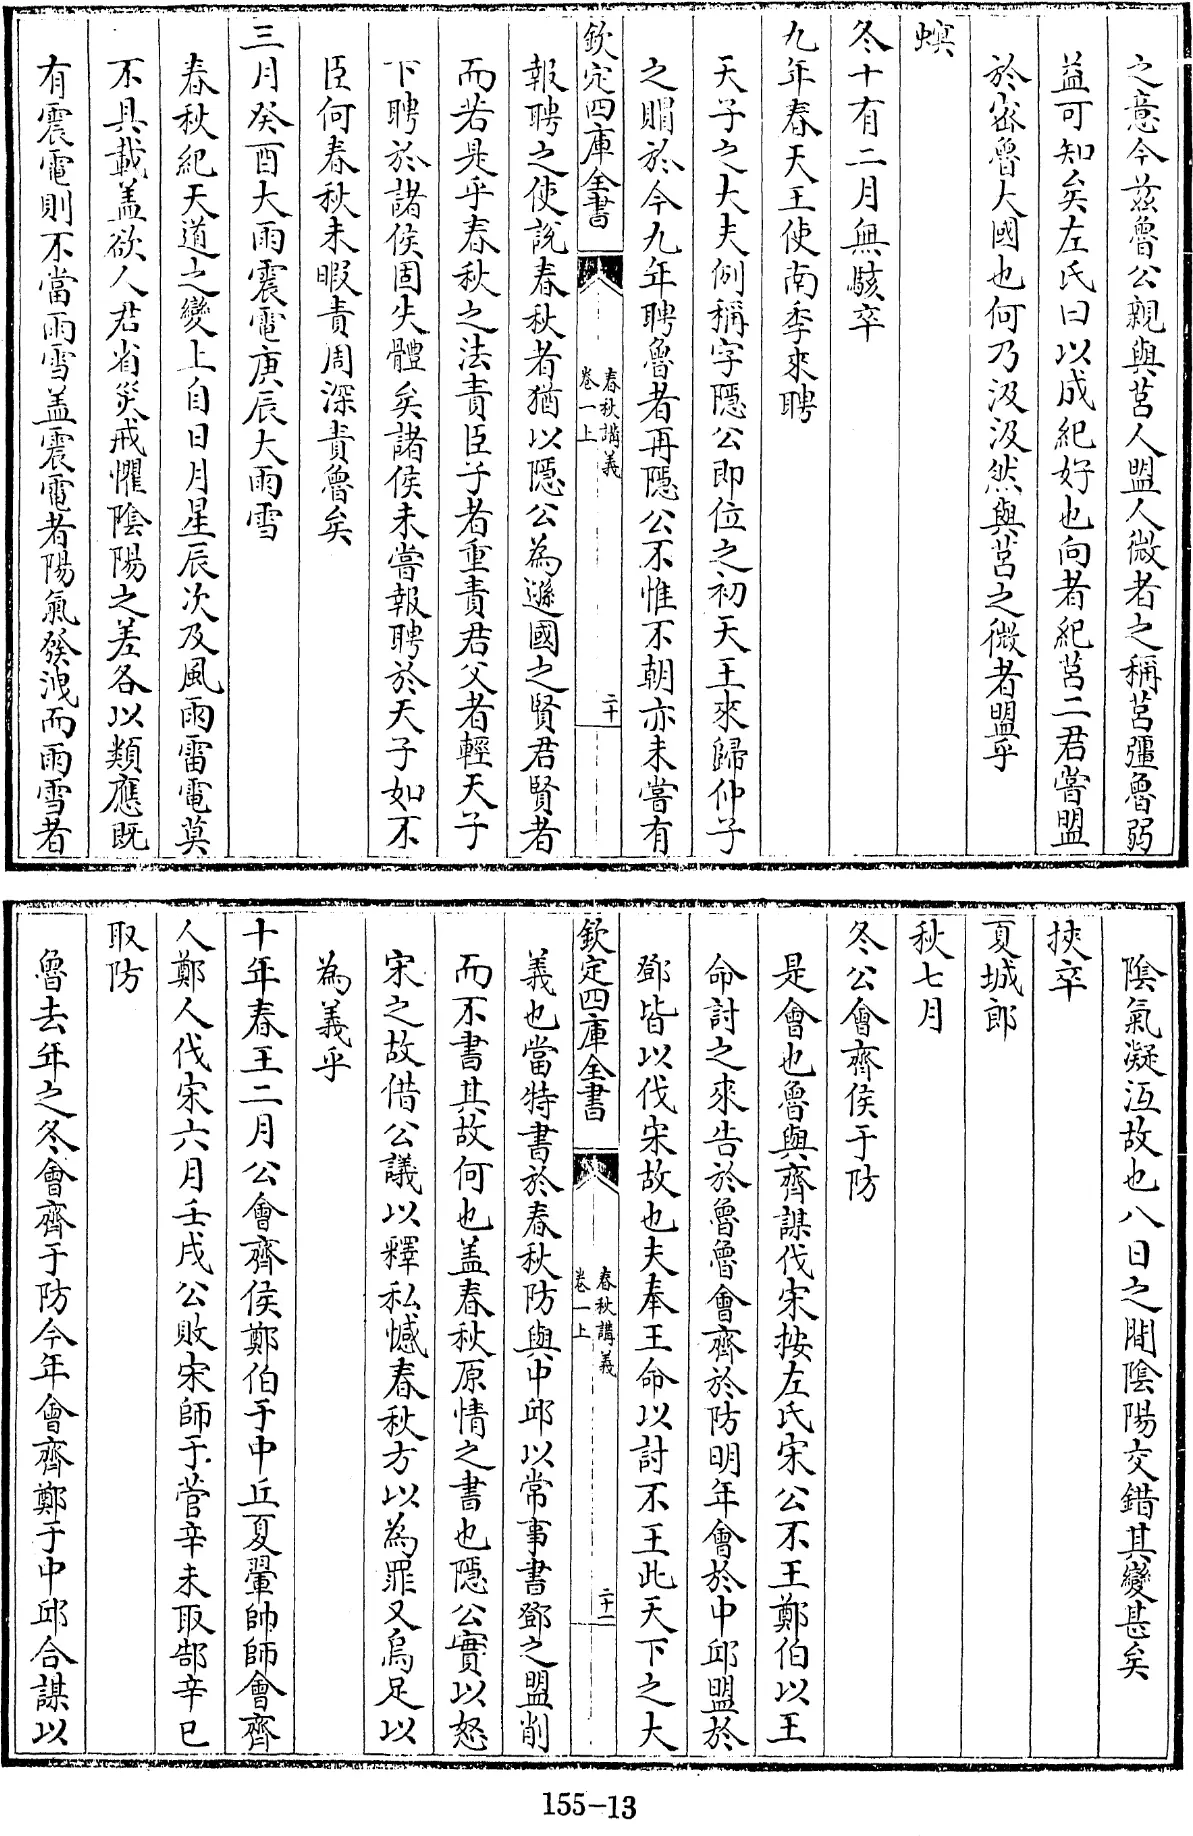 之意今茲魯公親與莒人盟人微者之稱莒彊魯弱
益可知矣左氏曰以成紀好也向者紀莒二君嘗盟
於宻魯大國也何乃汲汲然與莒之微者盟乎
螟
冬十有二月無駭卒
九年春天王使南季來聘
天子之大夫例稱字隱公即位之初天王來歸仲子
之賵於今九年聘魯者再隱公不惟不朝亦未嘗有
欽定四庫全書
春秋講義
卷一上
二十
報聘之使說春秋者猶以隱公為遜國之賢君賢者
而若是乎春秋之法責臣子者重責君父者輕天子
下聘於諸侯固失體矣諸侯未嘗報聘於天子如不
臣何春秋未暇責周深責魯矣
三月癸酉大雨震電庚辰大雨雪
春秋紀天道之變上自日月星辰次及風雨雷電莫
不具載盖欲人君省災戒懼陰陽之差各以類應既
有震電則不當雨雪盖震電者陽氣發洩而雨雪者
陰氣凝沍故也八日之間陰陽交錯其變甚矣
挾卒
夏城郎
秋七月
冬公會齊侯于防
是會也魯與齊謀伐宋按左氏宋公不王鄭伯以王
命討之來告於魯魯會齊於防明年會於中邱盟於
鄧皆以伐宋故也夫奉王命以討不王此天下之大
欽定四庫全書
春秋講義
卷一上
二十一
義也當特書於春秋防與中邱以常事書鄧之盟削
而不書其故何也盖春秋原情之書也隱公實以怒
宋之故借公議以釋私憾春秋方以為罪又烏足以
為義乎
十年春王二月公會齊侯鄭伯于中丘夏翬帥師會齊
人鄭人伐宋六月壬戌公敗宋師于菅辛未取郜辛巳
取防
魯去年之冬會齊于防今年會齊鄭于中邱合謀以
155-13